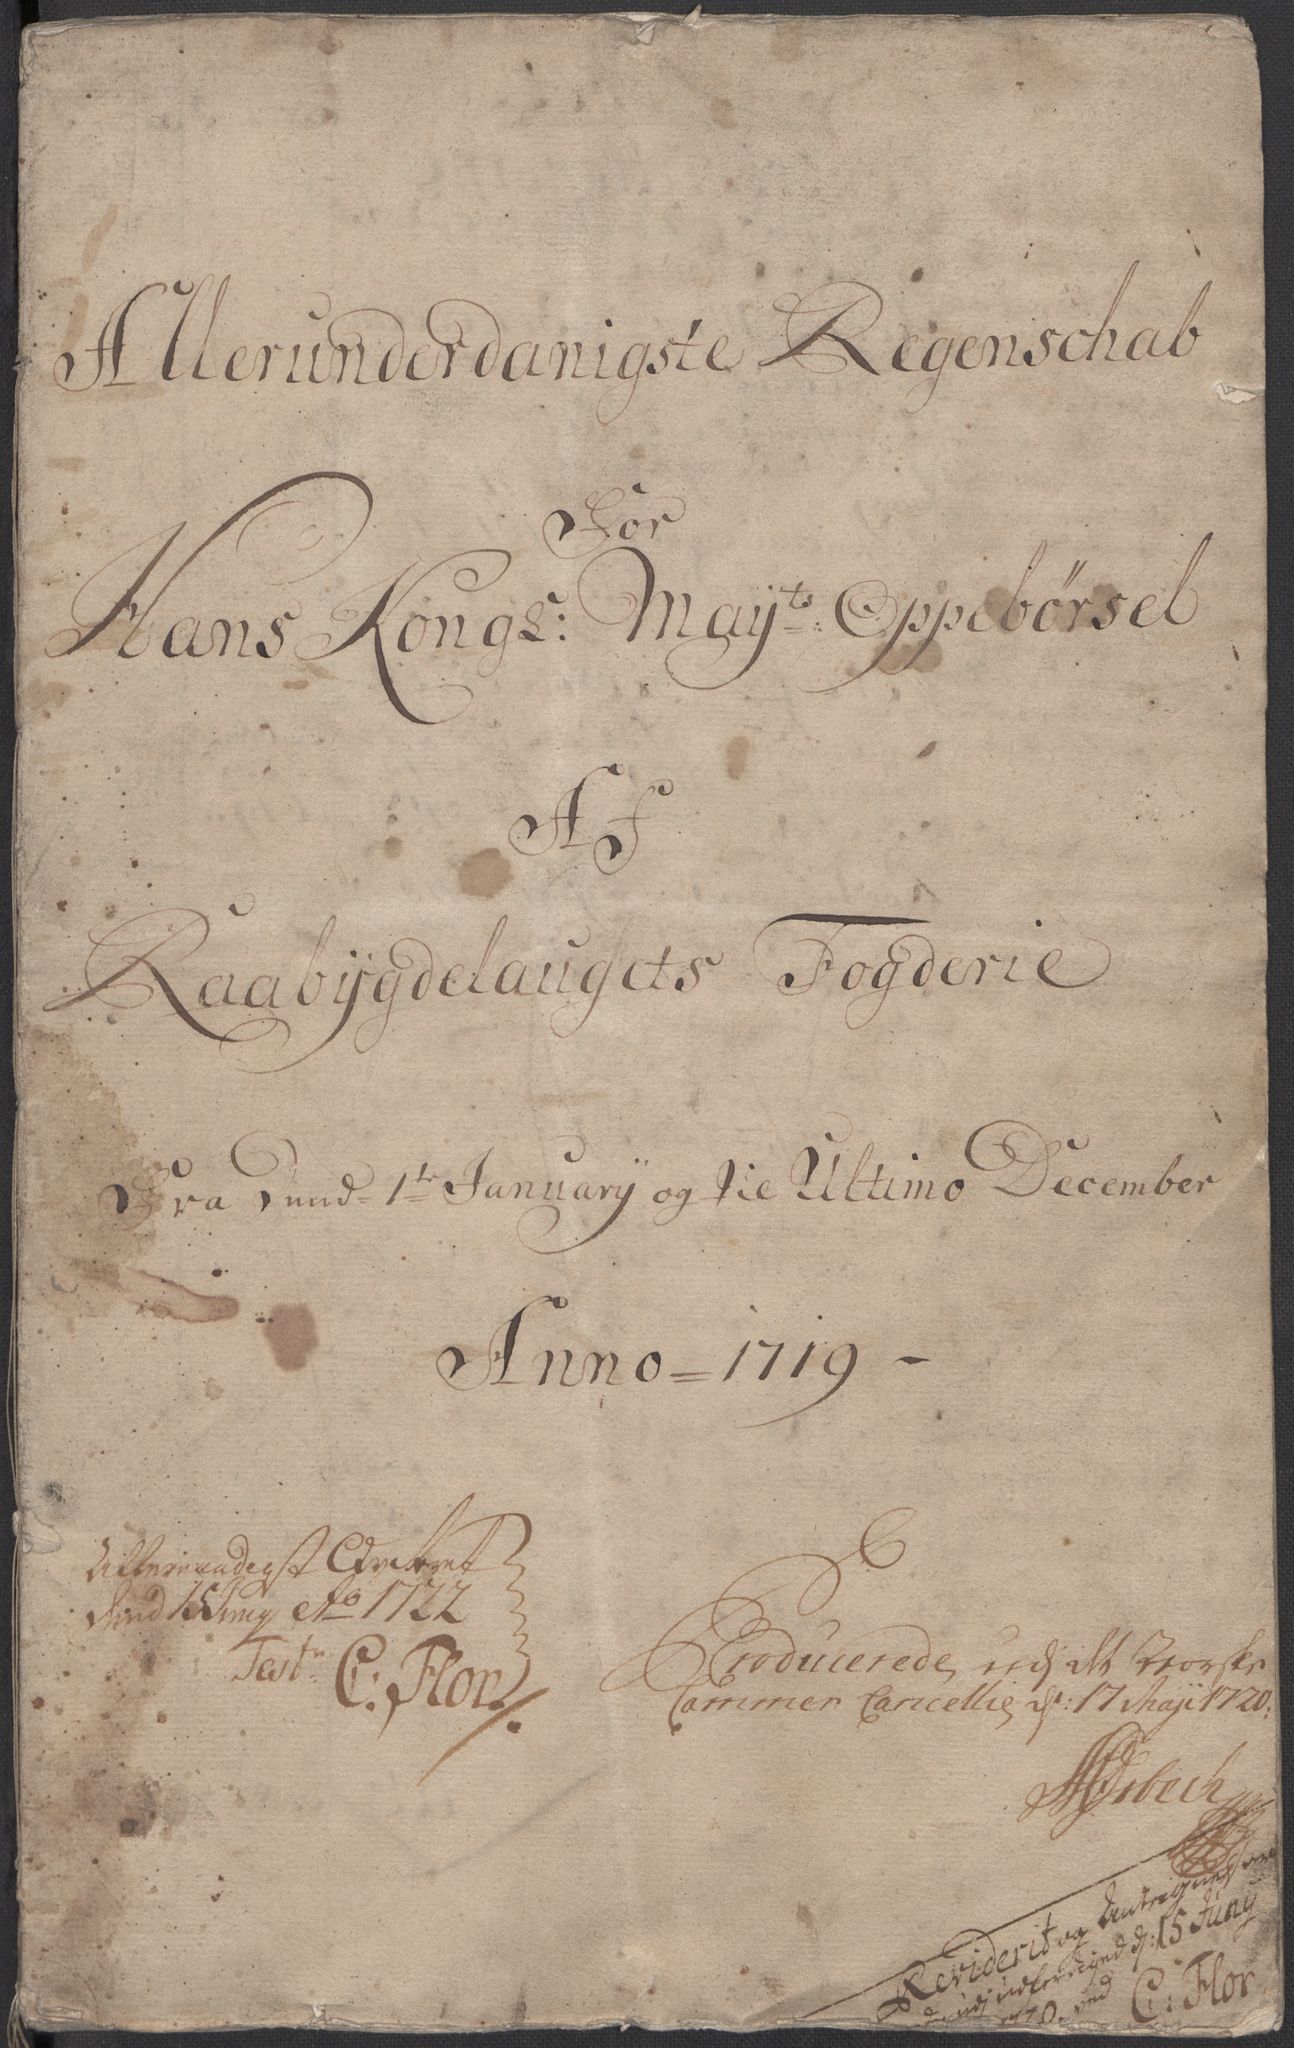 Allerunderdanigste Regenschab
For
Hans Kongl: Mayts: Oppebörsel
Af
Raabÿgdelaugets Fogderie
Fra dend 1te Januarÿ og tie Ultimo December
Anno = 1719 -
dend 15 Juny Ao 1722
Test C: Flor
Producerede udj dt Norske
Cammer Cancellie, d: 17 Maji 1720:
Reviderit og
d: 15 Juny
ved C: Flor